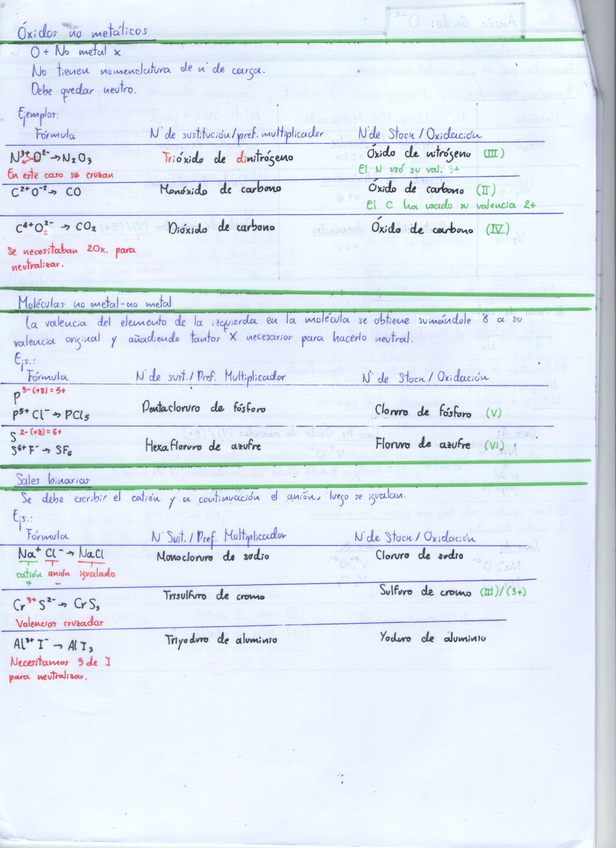 Óxidos no metálicos
O + No metal x
No tienen nomenclatura de nº de carga.
Debe quedar neutro.
Ejemplos:
Fórmula N. de sustitución/pref. multiplicador N. de Stock / Oxidación
N³⁺O²⁻→N₂O₃ Trióxido de dinitrógeno Óxido de nitrógeno (III)
En este caso se cruzan El N usó su val. 3+
C²⁺O⁻² → CO Monóxido de carbono Óxido de carbono (II)
El C ha usado su valencia 2+
C⁴⁺O₂²⁻ → CO₂ Dióxido de carbono Óxido de carbono (IV)
Se necesitaban 2Ox. para
neutralizar.
Moléculas no metal-no metal
La valencia del elemento de la izquierda en la molécula se obtiene sumándole 8 a su
valencia original y añadiendo tantos X necesarios para hacerlo neutral.
Ejs.:
Fórmula N. de sust. / Pref. Multiplicador N. de Stock / Oxidación
P³⁻⁽⁺⁸⁾⁼⁵⁺
P⁵⁺Cl⁻→ PCl₅ Pentacloruro de fósforo Cloruro de fósforo (V)
S²⁻⁽⁺⁸⁾⁼⁶⁺
S⁶⁺F⁻→ SF₆ Hexafloruro de azufre Floruro de azufre (VI)
Sales binarias
Se debe escribir el catión y a continuación el anión, luego se igualan.
Ejs.:
Fórmula N. Sust. / Pref. Multiplicador N. de Stock / Oxidación
Na⁺ Cl⁻→ NaCl Monocloruro de sodio Cloruro de sodio
catión anión igualado
+ -
Cr³⁺S²⁻→ CrS₃ Trisulfuro de cromo Sulfuro de cromo (III)/(3+)
Valencias cruzadas
Al³⁺I⁻ → AlI₃ Triyoduro de aluminio Yoduro de aluminio
Necesitamos 3 de I
para neutralizar.